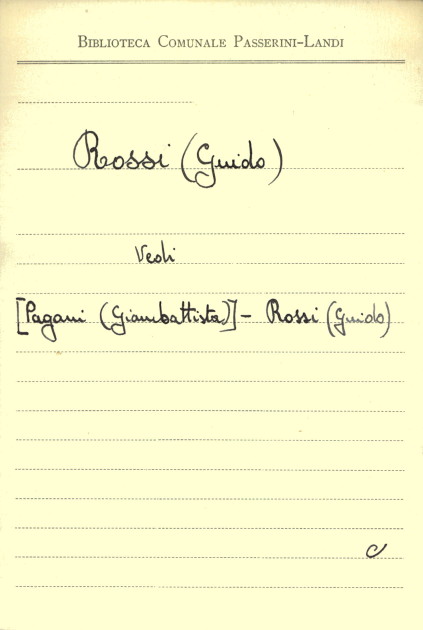 BIBLIOTECA COMUNALE PASSERINI-LANDI
Rossi (Guido)
Vedi
[Pagani (Giambattista)] - Rossi (Guido)